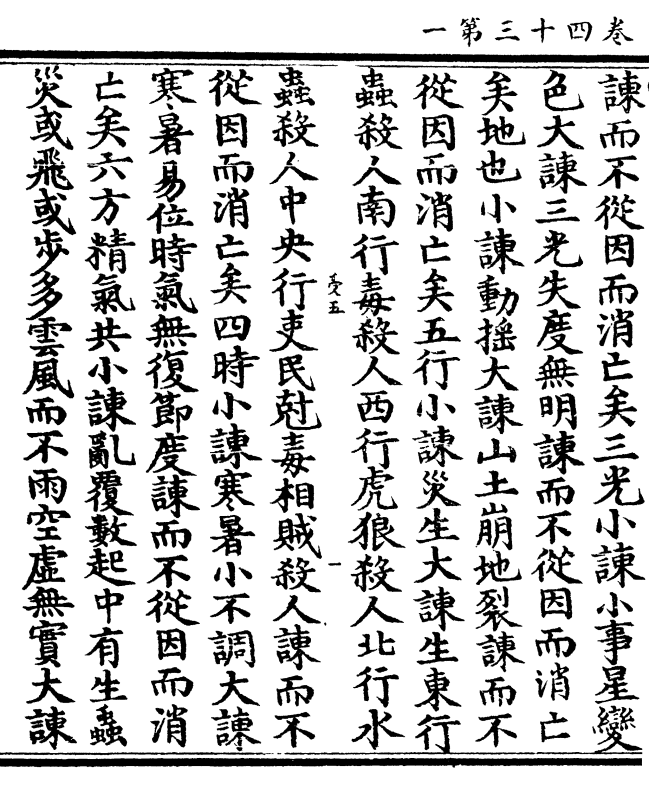 卷四十三第一
諫而不從因而消亡矣三光小諫小事星變
色大諫三光失度無明諫而不從因而消亡
矣地也小諫動摇大諫山土崩地裂諫而不
從因而消亡矣五行小諫災生大諫生東行
蟲殺人南行毒殺人西行虎狼殺人北行水
受五 一
蟲殺人中央行吏民尅毒相賊殺人諫而不
從因而消亡矣四時小諫寒暑小不調大諫
寒暑易位時氣無復節度諫而不從因而消
亡矣六方精氣共小諫亂覆數起中有生蟲
災或飛或步多雲風而不雨空虛無實大諫